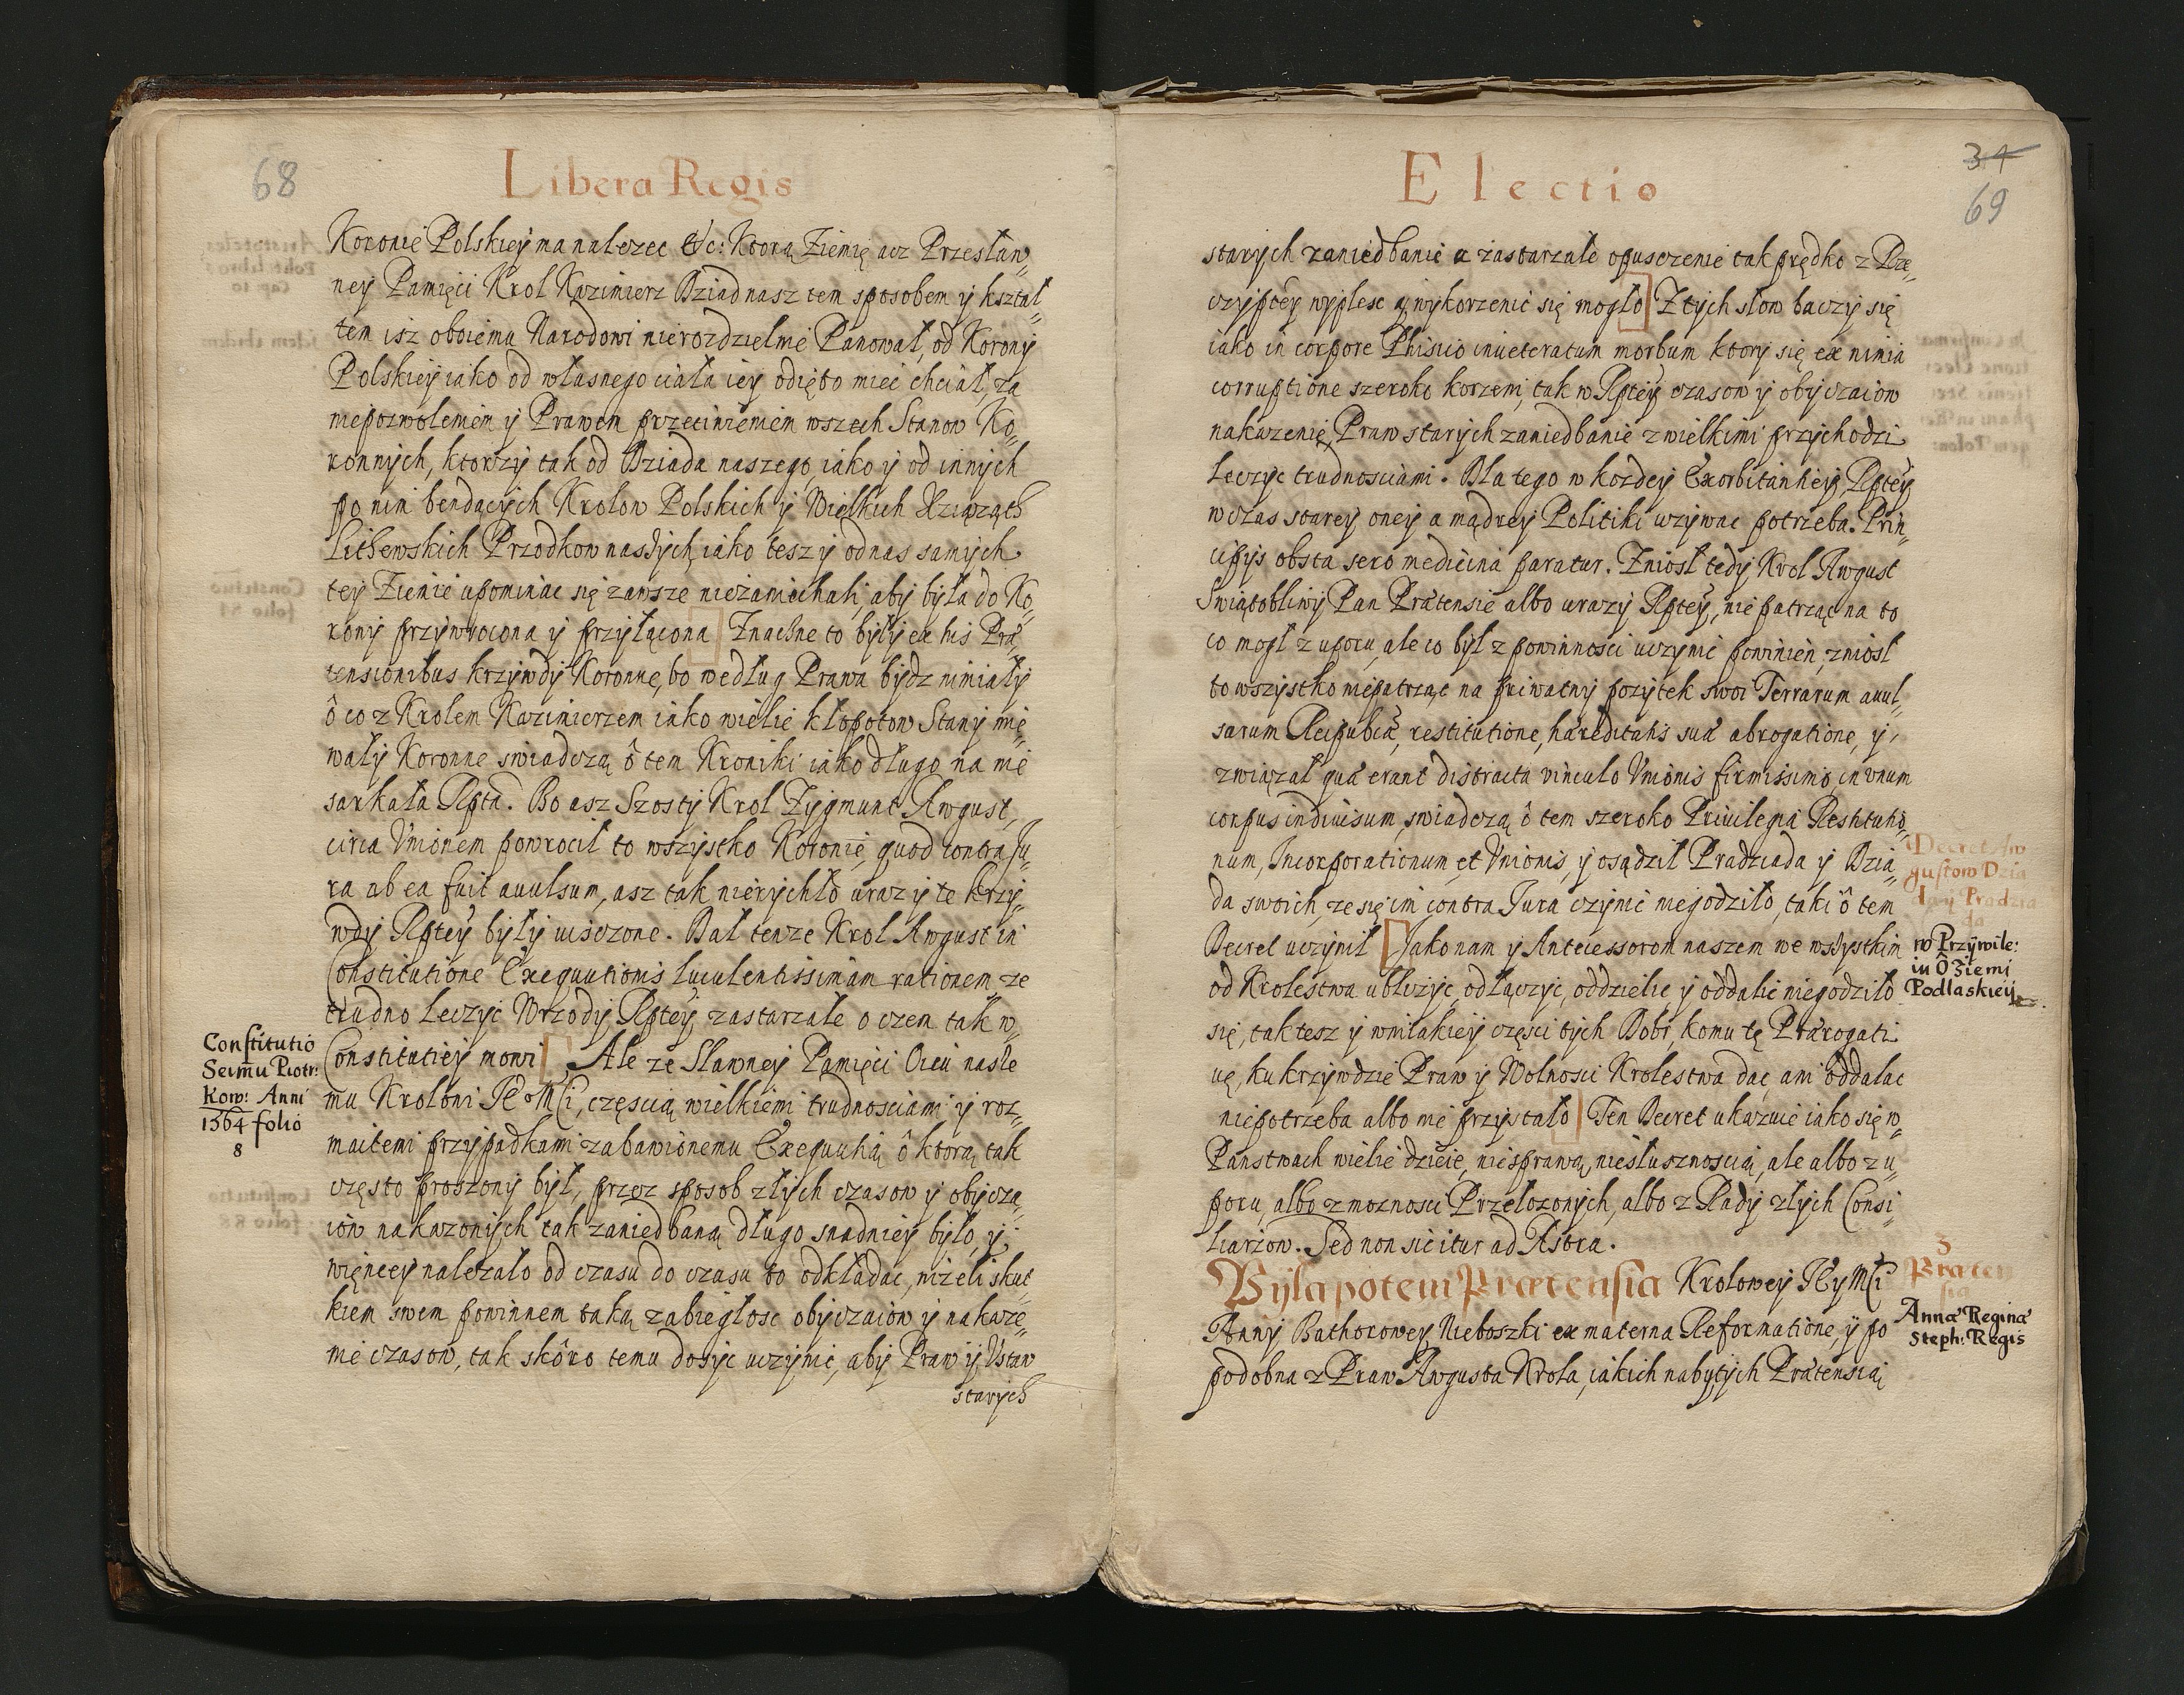 68
Libera Regis
Koronie Polskiey ma nalezec &c: Ktorą Ziemię acz Przesław„
ney Pamięci Krol Kazimierz Dziad nasz tem sposobem y kształ„
tem isz oboiemu Narodowi nierozdzielnie Panował, od Korony
Polskiey iako od własnego ciała iey odięto mieć chciał, za
niepozwolemem y Prawem przeciwiemem wszech Stanow Ko„
ronnych, ktorzy tak od Dziada naszego, iako y od innych
po nim bendących Krolow Polskich y Wielkich Xziąząth
Lithewskich Przodkow naszych, iako tesz y od nas samych
tey Ziemie upominac się zawsze niezaniechali, aby była do Ko„
rony przywrocona y przyłącona] Znaczne to były ex his Præ„
tensionibus krzywdy Koronne, bo według Prawa bydz nimiały
ô co z Krolem Kazimierzem iako wielie kłopotow Stany mie„
wały Koronne swiadczą ô tem Kroniki iako długo na nie
sarkała Rptā. Bo asz Szosty Krol Zygmunt Awgust,
circa Vnionem powrocił to wszystko Koronie, quod contra Ju„
ra ab ea fuit auulsum, asz tak nierychło urazy te krzy„
wdy Rptey były uisczone. Dał tenze Krol Awgust in
Constitutione Exequutionis luculentissimam rationem, ze
trudno leczyc Wrzody Rptey zastarzałe o czem tak w„
Constitutiey mowi [Ale ze Sławney Pamięci Oicu nasze
mu Krolowi JE°Mści, częscią wielkiemi trudnosciami y roz„
maitemi przypadkami zabawionemu Exequutią ô ktorą tak
często proszony był, przez sposob złych czasow y obycza„
iow nakazonych tak zaniedbaną długo snadniey było, y
więncey nalezało od czasu do czasu to odkładac, nizeli skut
kiem swem powinnem taką zabiegłosc obyczaiow y nakaze„
nie czasow, tak skôro temu dosyc uczynic, aby Praw y Vstaw
starych
Constitutio
Seimu Piotr:
Kow: Anni
1564 folio
8
Electio
34
69
starych zaniedbanie a zastarzałe opusczenie tak prędko z Rze„
czyptey wyplesc a wykorzenic się mogło] Z tych słow baczy się
iako in corpore Phisico inueteratum morbum ktory się ex nimia
corruptione szeroko korzeni, tak w Rptey czasow y obyczaiow
nakazenie, Praw starych zaniedbanie z wielkimi przychodzi
leczyc trudnosciami. Dla tego w kozdey Exorbitantiey Rptey
wczas starey oney a mądrey Politiki uzywac potrzeba. Prin„
cipijs obsta sero medicina paratur. Zniosł tedy Krol Awgust
Swiątobliwy Pan Prætensie albo urazy Rptey, nie patrząc na to
co mogł z uporu, ale co był z powinnosci uczynic powinien, zniosł
to wszystko niepatrząc na priwatny pozytek swoi Terrarum auul„
sarum Reipublicæ, restitutione, hæreditatis suæ abrogatione, y
związał quæ erant distracta vinculo Vnionis firmissimo, in vnum
corpus indiuisum, swiadczą ô tem szeroko Priuilegia Restitutio„
num, Incorporationum, et Vnionis, y osądził Pradziada y Dzia„
da swoich, ze się im contra Jura czynic niegodziło, taki ô tem
Decret uczynił [Jako nam y Antecessorom naszem we wszystkim
od Krolestwa ublizyc, odłączyc, oddzielic y oddalic niegodziło
się, tak tesz y wnilakiey częsci tych Dobr, komu tę Prærogati
uę, ku krzywdzie Praw y Wolnosci Krolestwa dac, ani oddalac
niepotrzeba albo nie przystało] Ten Decret ukazuie iako się w„
Panstwach wielie dzieie, niesprawą, niesłusznoscią, ale albo z u„
poru, albo z moznosci Przełozonych, albo z Rady złych Consi„
liarzow. Sed non sic itur ad Astra.
Była potem Prætensia Krolowey JEy Mści
Anny Bathorowey Nieboszki ex materna Reformatione, y po
podobna z Praw Awgusta Krola, iakich nabytych Prætensią
Decret Aw
gustow Dzia
da y Pradzia
da
w Przywile:
iu Ô Ziemi
Podlaskiey
3
Præten
sia
Annæ Reginæ
Steph: Regis